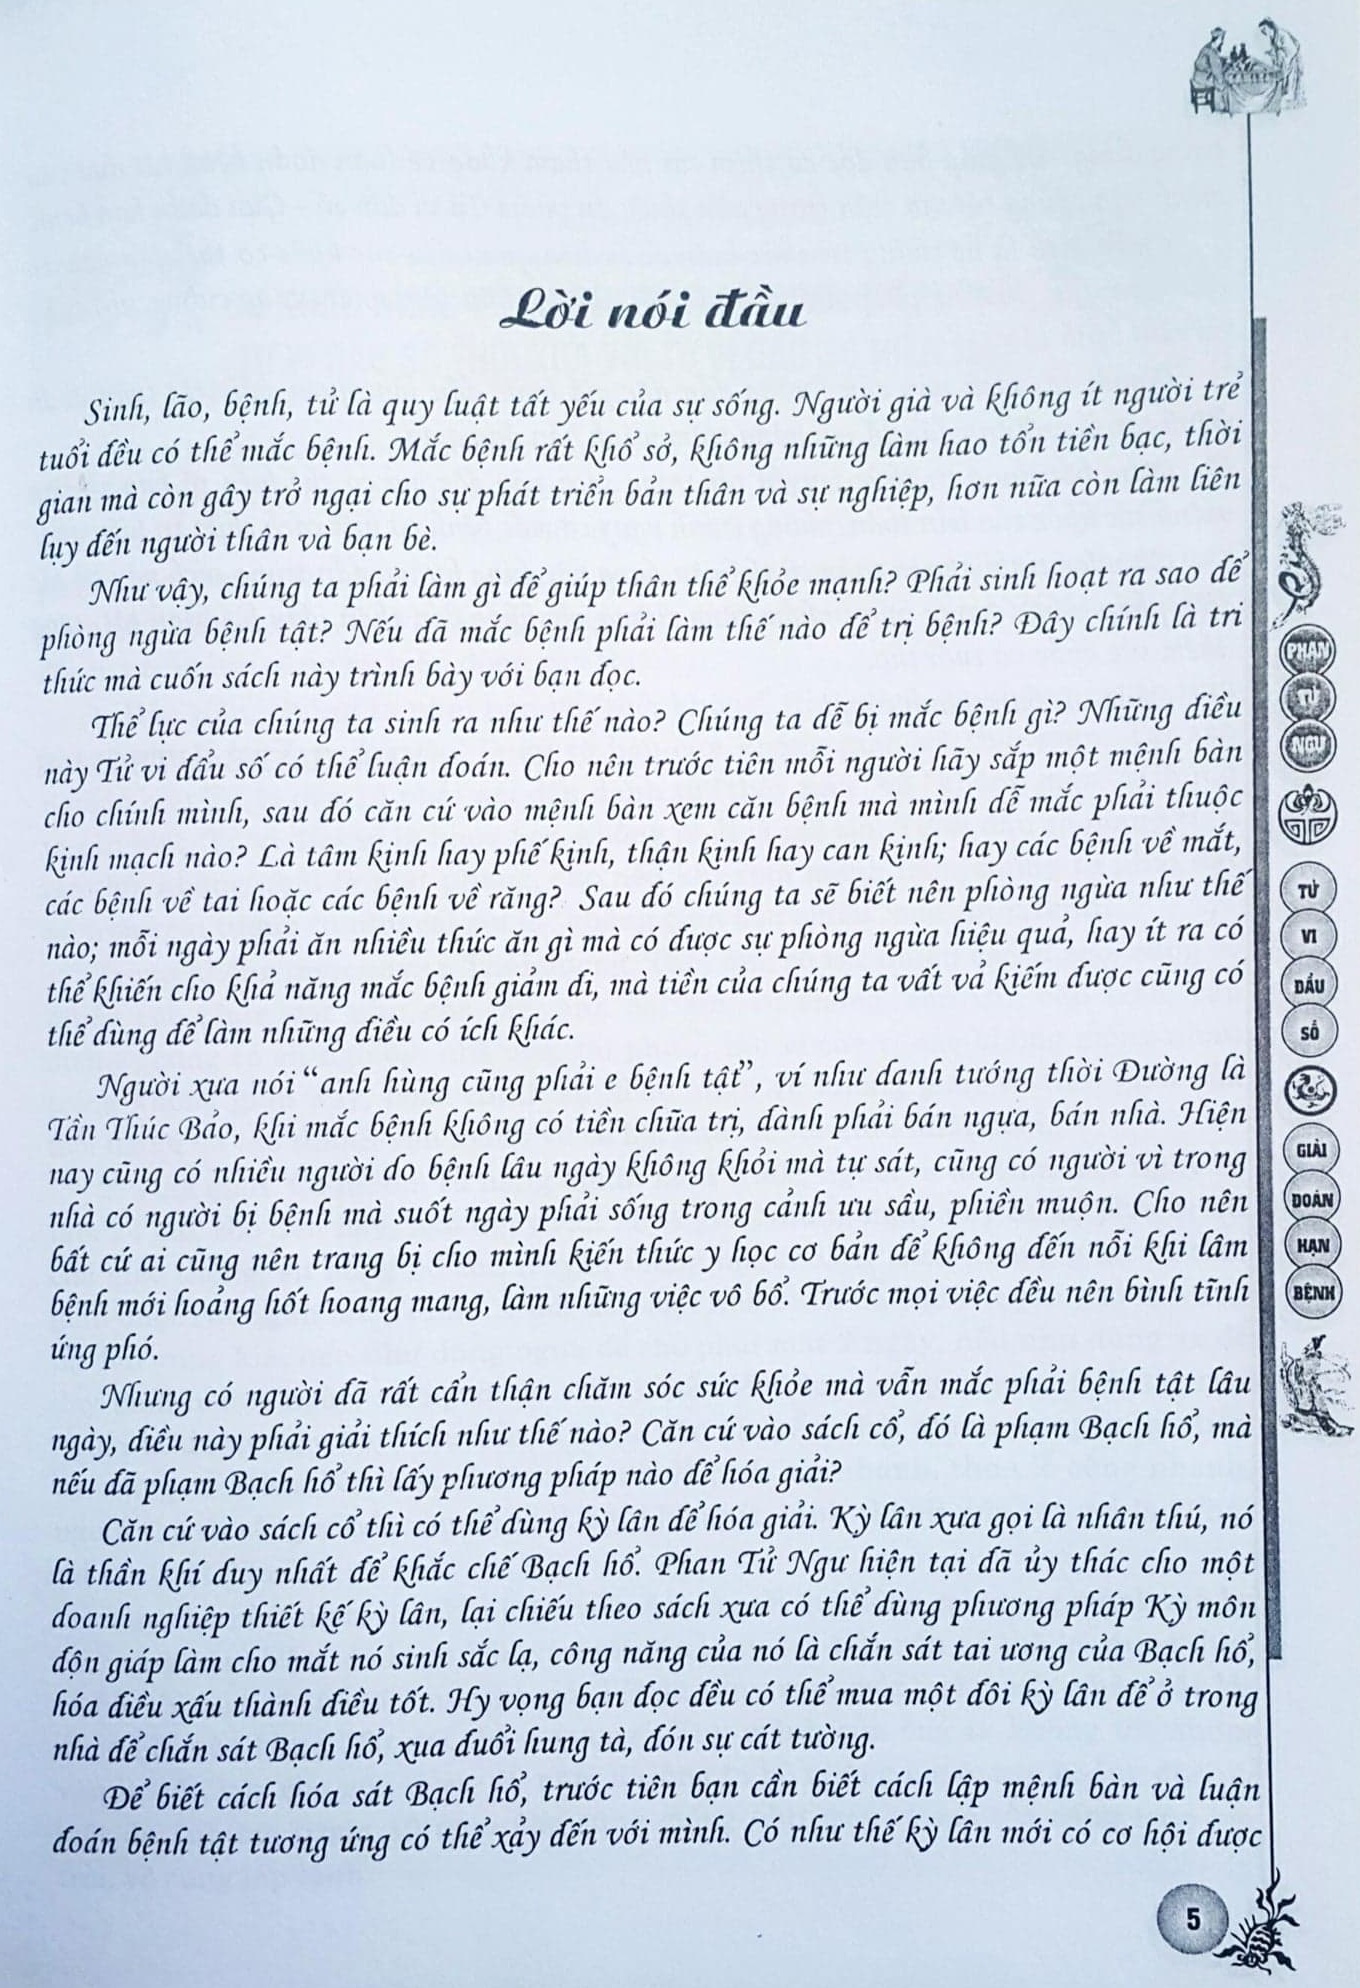 Lời nói đầu
Sinh, lão, bệnh, tử là quy luật tất yếu của sự sống. Người già và không ít người trẻ
tuổi đều có thể mắc bệnh. Mắc bệnh rất khổ sở, không những làm hao tổn tiền bạc, thời
gian mà còn gây trở ngại cho sự phát triển bản thân và sự nghiệp, hơn nữa còn làm liên
lụy đến người thân và bạn bè.
Như vậy, chúng ta phải làm gì để giúp thân thể khỏe mạnh? Phải sinh hoạt ra sao để
phòng ngừa bệnh tật? Nếu đã mắc bệnh phải làm thế nào để trị bệnh? Đây chính là tri
thức mà cuốn sách này trình bày với bạn đọc.
Thể lực của chúng ta sinh ra như thế nào? Chúng ta dễ bị mắc bệnh gì? Những điều
này Tử vi đẩu số có thể luận đoán. Cho nên trước tiên mỗi người hãy sắp một mệnh bàn
cho chính mình, sau đó căn cứ vào mệnh bàn xem căn bệnh mà mình dễ mắc phải thuộc
kinh mạch nào? Là tâm kinh hay phế kinh, thận kinh hay can kinh; hay các bệnh về mắt,
các bệnh về tai hoặc các bệnh về răng? Sau đó chúng ta sẽ biết nên phòng ngừa như thế
nào; mỗi ngày phải ăn nhiều thức ăn gì mà có được sự phòng ngừa hiệu quả, hay ít ra có
thể khiến cho khả năng mắc bệnh giảm đi, mà tiền của chúng ta vất vả kiếm được cũng có
thể dùng để làm những điều có ích khác.
Người xưa nói “anh hùng cũng phải e bệnh tật”, ví như danh tướng thời Đường là
Tần Thúc Bảo, khi mắc bệnh không có tiền chữa trị, đành phải bán ngựa, bán nhà. Hiện
nay cũng có nhiều người do bệnh lâu ngày không khỏi mà tự sát, cũng có người vì trong
nhà có người bị bệnh mà suốt ngày phải sống trong cảnh ưu sầu, phiền muộn. Cho nên
bất cứ ai cũng nên trang bị cho mình kiến thức y học cơ bản để không đến nỗi khi lâm
bệnh mới hoảng hốt hoang mang, làm những việc vô bổ. Trước mọi việc đều nên bình tĩnh
ứng phó.
Nhưng có người đã rất cẩn thận chăm sóc sức khỏe mà vẫn mắc phải bệnh tật lâu
ngày, điều này phải giải thích như thế nào? Căn cứ vào sách cổ, đó là phạm Bạch hổ, mà
nếu đã phạm Bạch hổ thì lấy phương pháp nào để hóa giải?
Căn cứ vào sách cổ thì có thể dùng kỳ lân để hóa giải. Kỳ lân xưa gọi là nhân thú, nó
là thần khí duy nhất để khắc chế Bạch hổ. Phan Tử Ngư hiện tại đã ủy thác cho một
doanh nghiệp thiết kế kỳ lân, lại chiếu theo sách xưa có thể dùng phương pháp Kỳ môn
độn giáp làm cho mắt nó sinh sắc lạ, công năng của nó là chắn sát tai ương của Bạch hổ,
hóa điều xấu thành điều tốt. Hy vọng bạn đọc đều có thể mua một đôi kỳ lân để ở trong
nhà để chắn sát Bạch hổ, xua đuổi hung tà, đón sự cát tường.
Để biết cách hóa sát Bạch hổ, trước tiên bạn cần biết cách lập mệnh bàn và luận
đoán bệnh tật tương ứng có thể xảy đến với mình. Có như thế kỳ lân mới có cơ hội được
PHAN
TỬ
NGƯ
TỬ
VI
ĐẨU
SỐ
GIẢI
ĐOÁN
HẠN
BỆNH
5